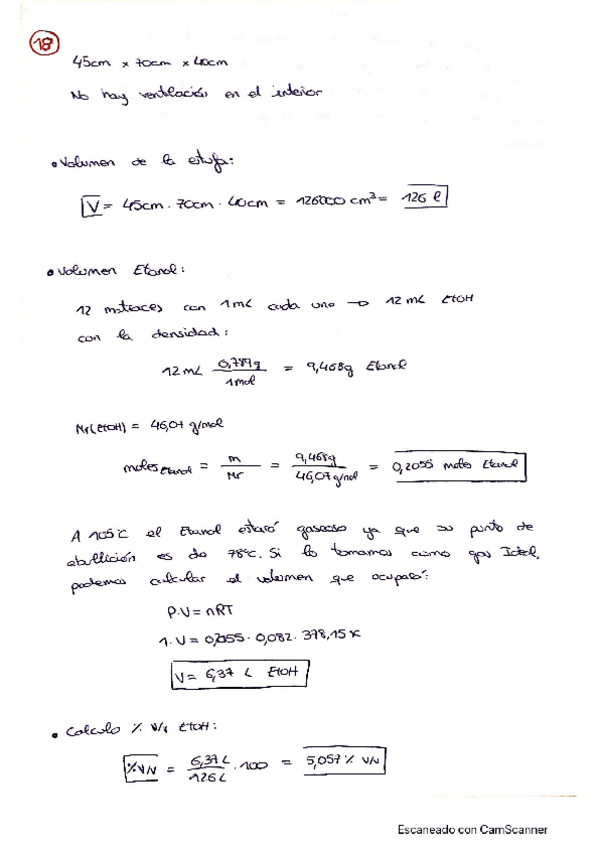 18
45cm x 70cm x 40cm
No hay ventilación en el interior
• Volumen de la estufa:
V = 45cm · 70cm · 40cm = 126000 cm³ = 126 l
• Volumen Etanol:
12 matraces con 1mL cada uno → 12 mL EtOH
con la densidad:
12 mL 0,789g / 1mol = 9,468g Etanol
Mr(EtOH) = 46,07 g/mol
moles Etanol = m / Mr = 9,468g / 46,07 g/mol = 0,2055 moles Etanol
A 105°C el Etanol estará gaseoso ya que su punto de
ebullición es de 78°C. Si lo tomamos como gas Ideal,
podemos calcular el volumen que ocupará:
P.V = nRT
1. V = 0,2055 · 0,082 · 378,15 K
V = 6,37 L EtOH
• Calculo % V/V EtOH:
% V/V = 6,37 L / 126 L · 100 = 5,057 % V/V
Escaneado con CamScanner